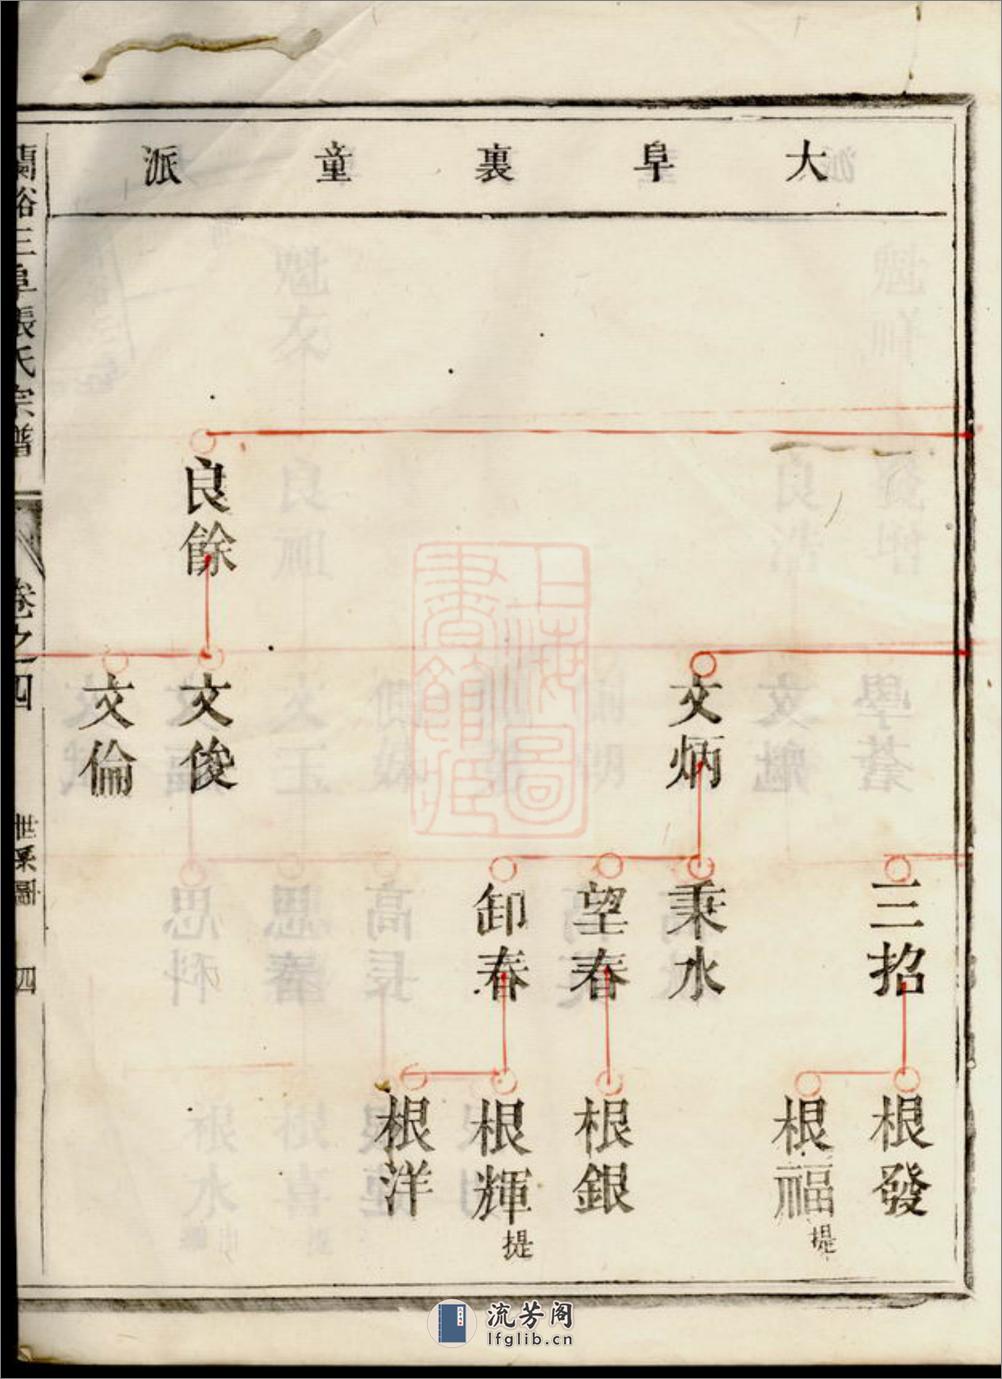 大阜裏童派
三招
根發
根福
提
文炳
秉水
望春
根銀
卸春
根輝
提
根洋
良餘
文俊
文倫
蘭谿三阜張氏宗譜
卷之四
世系圖
四
上海圖書館藏
流芳阁
lfglib.cn